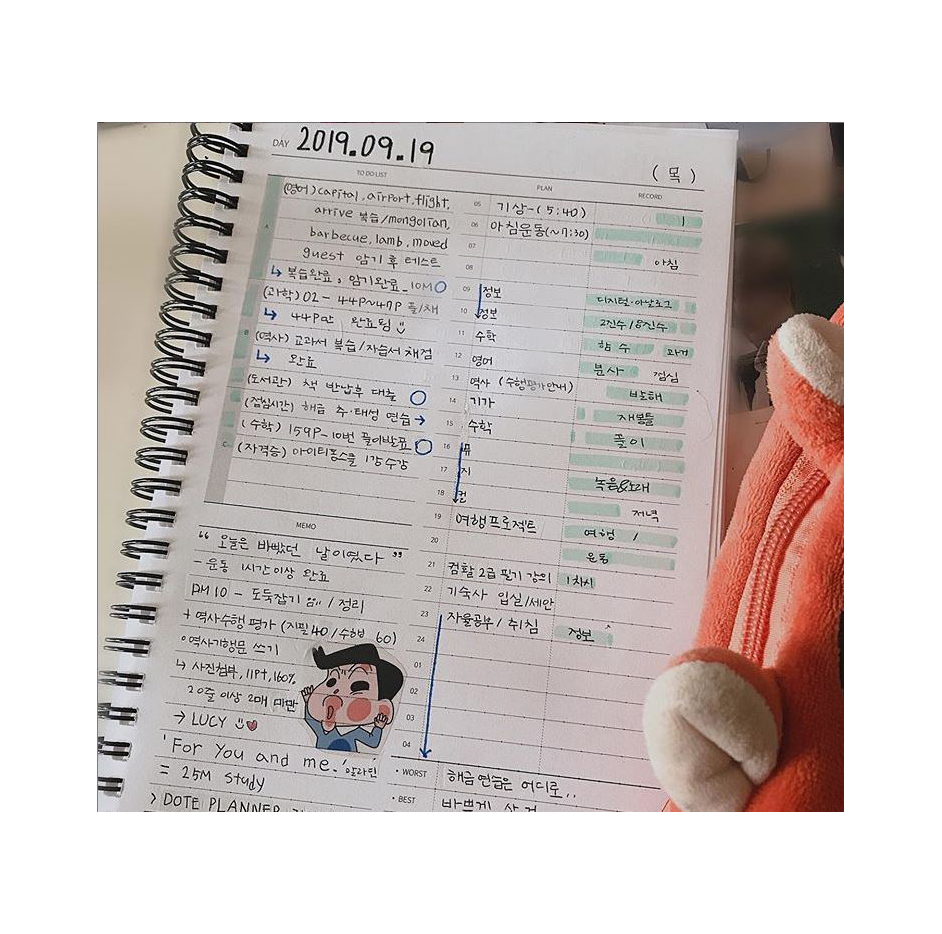 DAY 2019.09.19
(목)
TO DO LIST
(영어) capital, airport, flight,
arrive 복습/mongolian,
barbecue, lamb, moved
guest 암기 후 테스트
↳ 복습완료, 암기완료 10M
(과학) 02 - 44P~47P 풀/채
↳ 44P만 완료됨
(역사) 교과서 복습/자습서 채점
↳ 완료
(도서관) 책 반납후 대출
(점심시간) 해금 추·태성 연습 →
(수학) 159P-10번 풀이발표
(자격증) 아이티풍스쿨 1강 수강
A
B
C
PLAN
RECORD
05 기상-(5:40)
06 아침운동(~7:30)
07 아침
08
09 정보 디지털·아날로그
10 정보 2진수/8진수
11 수학 함수 과거
12 영어 분사 점심
13 역사 (수행평가안내)
14 기가 반도해
15 수학 재봉틀
16 풀이
17 지
18 컬 녹음&노래
저녁
19 여행프로젝트 여행 /
20 운동
21 컴활 2급 필기 강의 1차시
22 기숙사 입실/세안
23 자율공부/취침 정보
24
01
02
03
04
MEMO
“오늘은 바빴던 날이였다”
- 운동 1시간이상 완료
PM 10 - 도둑잡기 /정리
+ 역사수행평가 (지필40/수행 60)
역사기행문 쓰기
↳ 사진첨부, 11pt, 160%,
20줄 이상 2매 미만
→ LUCY
'For you and me.'
= 25M study
> DOTE PLANNER
• WORST 해금연습은 어디로..
• BEST 바쁘게 살